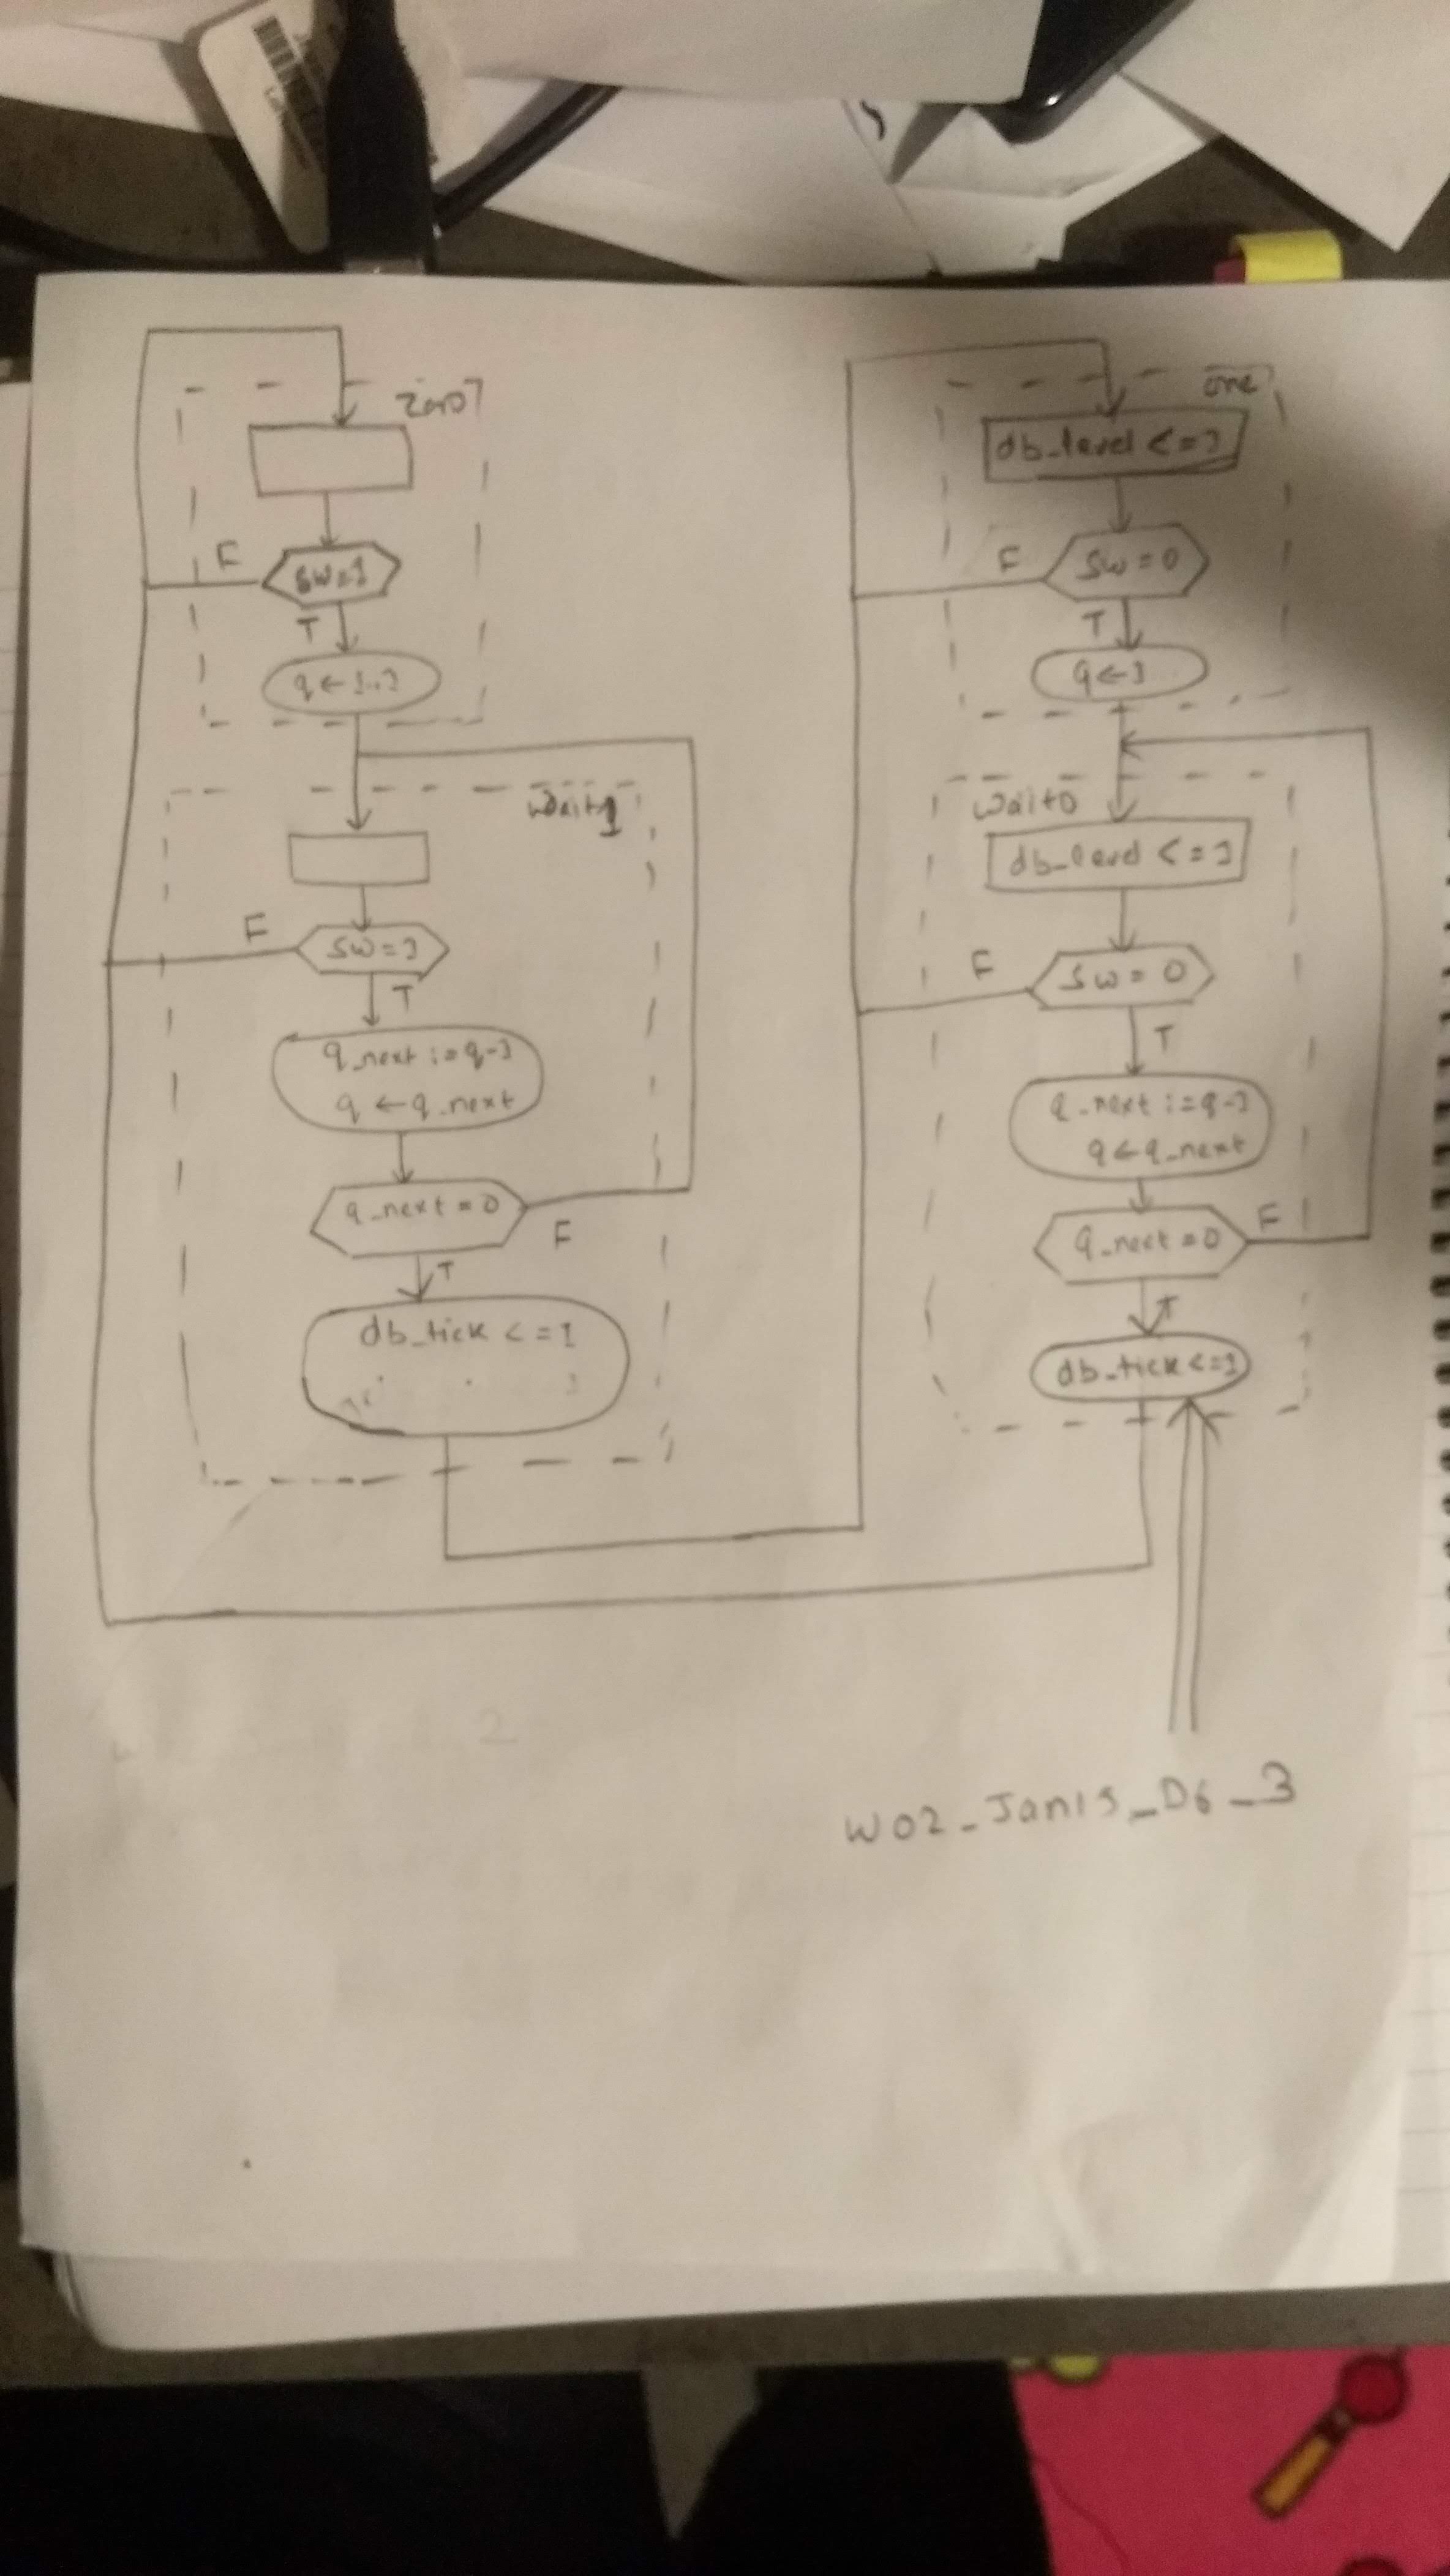 zero
sw=1
F
T
q ← 1..1
wait1
sw=1
F
T
q_next := q-1
q ← q_next
q_next = 0
F
T
db_tick <= 1
one
db_level <= 1
sw = 0
F
T
q ← 1
wait0
db_level <= 1
sw = 0
F
T
q_next := q-1
q ← q_next
q_next = 0
F
T
db_tick <= 1
W02_Jan15_D6_3